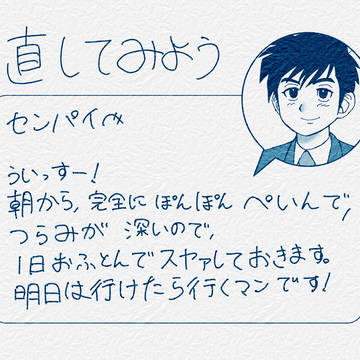 直してみよう
センパイへ
ういっすー!
朝から、完全に ぽんぽん ぺいんで、
つらみが 深いので、
1日おふとんでスヤァしておきます。
明日は行けたら行くマンです!